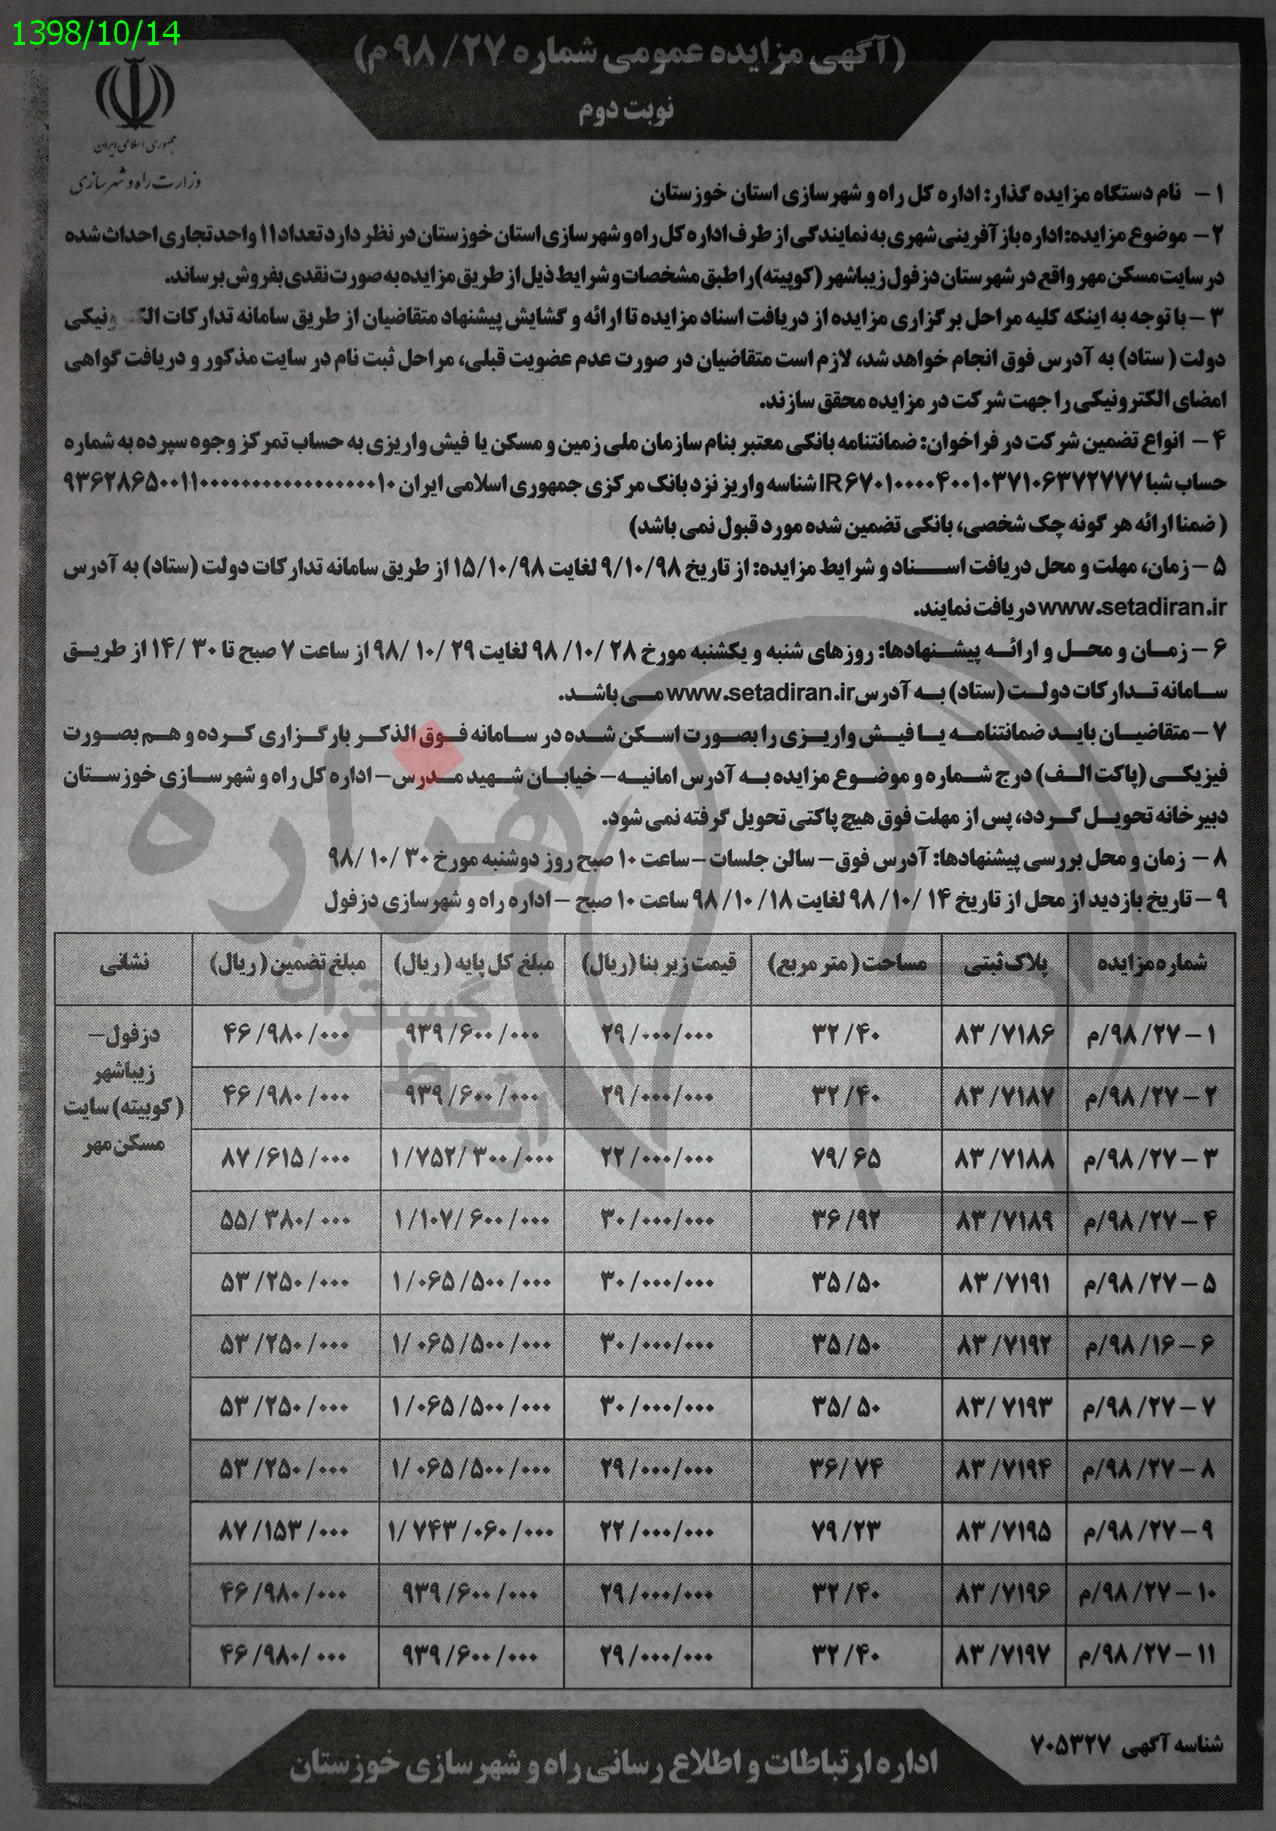 1398/10/14
(آگهی مزایده عمومی شماره ۹۸/۲۷ م)
نوبت دوم
جمهوری اسلامی ایران
وزارت راه و شهرسازی
۱ – نام دستگاه مزایده گذار: اداره کل راه و شهرسازی استان خوزستان
۲ – موضوع مزایده: اداره باز آفرینی شهری به نمایندگی از طرف اداره کل راه و شهرسازی استان خوزستان در نظر دارد تعداد ۱۱ واحد تجاری احداث شده
در سایت مسکن مهر واقع در شهرستان دزفول زیباشهر (کوپیته) را طبق مشخصات و شرایط ذیل از طریق مزایده به صورت نقدی بفروش برساند.
۳ – با توجه به اینکه کلیه مراحل برگزاری مزایده از دریافت اسناد مزایده تا ارائه و گشایش پیشنهاد متقاضیان از طریق سامانه تدارکات الکترونیکی
دولت ( ستاد) به آدرس فوق انجام خواهد شد، لازم است متقاضیان در صورت عدم عضویت قبلی، مراحل ثبت نام در سایت مذکور و دریافت گواهی
امضای الکترونیکی را جهت شرکت در مزایده محقق سازند.
۴ – انواع تضمین شرکت در فراخوان: ضمانتنامه بانکی معتبر بنام سازمان ملی زمین و مسکن یا فیش واریزی به حساب تمرکز وجوه سپرده به شماره
حساب شبا IR۶۷۰۱۰۰۰۰۴۰۰۱۰۳۷۱۰۶۳۷۲۷۷۷ شناسه واریز نزد بانک مرکزی جمهوری اسلامی ایران
( ضمنا ارائه هر گونه چک شخصی، بانکی تضمین شده مورد قبول نمی باشد)
۵ – زمان، مهلت و محل دریافت اسناد و شرایط مزایده: از تاریخ ۹/۱۰/۹۸ لغایت ۱۵/۱۰/۹۸ از طریق سامانه تدارکات دولت (ستاد) به آدرس
www.setadiran.ir دریافت نمایند.
۶ – زمان و محل و ارائه پیشنهادها: روزهای شنبه و یکشنبه مورخ ۲۸ /۱۰/ ۹۸ لغایت ۲۹ /۱۰/ ۹۸ از ساعت ۷ صبح تا ۳۰ /۱۴ از طریق
سامانه تدارکات دولت (ستاد) به آدرس www.setadiran.ir می باشد.
۷ – متقاضیان باید ضمانتنامه یا فیش واریزی را بصورت اسکن شده در سامانه فوق الذکر بارگزاری کرده و هم بصورت
فیزیکی (پاکت الف) درج شماره و موضوع مزایده به آدرس امانیه – خیابان شهید مدرس – اداره کل راه و شهرسازی خوزستان
دبیرخانه تحویل گردد، پس از مهلت فوق هیچ پاکتی تحویل گرفته نمی شود.
۸ – زمان و محل بررسی پیشنهادها: آدرس فوق – سالن جلسات – ساعت ۱۰ صبح روز دوشنبه مورخ ۳۰ /۱۰ /۹۸
۹ – تاریخ بازدید از محل از تاریخ ۱۴ /۱۰/ ۹۸ لغایت ۱۸ /۱۰/ ۹۸ ساعت ۱۰ صبح – اداره راه و شهرسازی دزفول
شماره مزایده پلاک ثبتی مساحت ( متر مربع) قیمت زیر بنا (ریال) مبلغ کل پایه ( ریال) مبلغ تضمین ( ریال) نشانی
۱ – ۹۸/۲۷/م ۸۳/۷۱۸۶ ۳۲/۴۰ ۲۹/۰۰۰/۰۰۰ ۹۳۹/۶۰۰/۰۰۰ ۴۶/۹۸۰/۰۰۰ دزفول – زیباشهر (کوپیته) سایت مسکن مهر
۲ – ۹۸/۲۷/م ۸۳/۷۱۸۷ ۳۲/۴۰ ۲۹/۰۰۰/۰۰۰ ۹۳۹/۶۰۰/۰۰۰ ۴۶/۹۸۰/۰۰۰
۳ – ۹۸/۲۷/م ۸۳/۷۱۸۸ ۷۹/۶۵ ۲۲/۰۰۰/۰۰۰ ۱/۷۵۲/۳۰۰/۰۰۰ ۸۷/۶۱۵/۰۰۰
۴ – ۹۸/۲۷/م ۸۳/۷۱۸۹ ۳۶/۹۲ ۳۰/۰۰۰/۰۰۰ ۱/۱۰۷/۶۰۰/۰۰۰ ۵۵/۳۸۰/۰۰۰
۵ – ۹۸/۲۷/م ۸۳/۷۱۹۱ ۳۵/۵۰ ۳۰/۰۰۰/۰۰۰ ۱/۰۶۵/۵۰۰/۰۰۰ ۵۳/۲۵۰/۰۰۰
۶ – ۹۸/۱۶/م ۸۳/۷۱۹۲ ۳۵/۵۰ ۳۰/۰۰۰/۰۰۰ ۱/۰۶۵/۵۰۰/۰۰۰ ۵۳/۲۵۰/۰۰۰
۷ – ۹۸/۲۷/م ۸۳/۷۱۹۳ ۳۵/۵۰ ۳۰/۰۰۰/۰۰۰ ۱/۰۶۵/۵۰۰/۰۰۰ ۵۳/۲۵۰/۰۰۰
۸ – ۹۸/۲۷/م ۸۳/۷۱۹۴ ۳۶/۷۴ ۲۹/۰۰۰/۰۰۰ ۱/۰۶۵/۵۰۰/۰۰۰ ۵۳/۲۵۰/۰۰۰
۹ – ۹۸/۲۷/م ۸۳/۷۱۹۵ ۷۹/۲۳ ۲۲/۰۰۰/۰۰۰ ۱/۷۴۳/۰۶۰/۰۰۰ ۸۷/۱۵۳/۰۰۰
۱۰ – ۹۸/۲۷/م ۸۳/۷۱۹۶ ۳۲/۴۰ ۲۹/۰۰۰/۰۰۰ ۹۳۹/۶۰۰/۰۰۰ ۴۶/۹۸۰/۰۰۰
۱۱ – ۹۸/۲۷/م ۸۳/۷۱۹۷ ۳۲/۴۰ ۲۹/۰۰۰/۰۰۰ ۹۳۹/۶۰۰/۰۰۰ ۴۶/۹۸۰/۰۰۰
شناسه آگهی ۷۰۵۳۲۷
اداره ارتباطات و اطلاع رسانی راه و شهرسازی خوزستان
هزاره